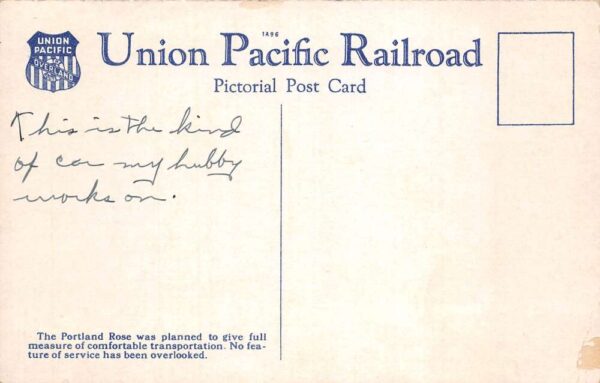 UNION
PACIFIC
OVERLAND
1A96
Union Pacific Railroad
Pictorial Post Card
This is the kind
of car my hubby
works on.
The Portland Rose was planned to give full
measure of comfortable transportation. No fea-
ture of service has been overlooked.